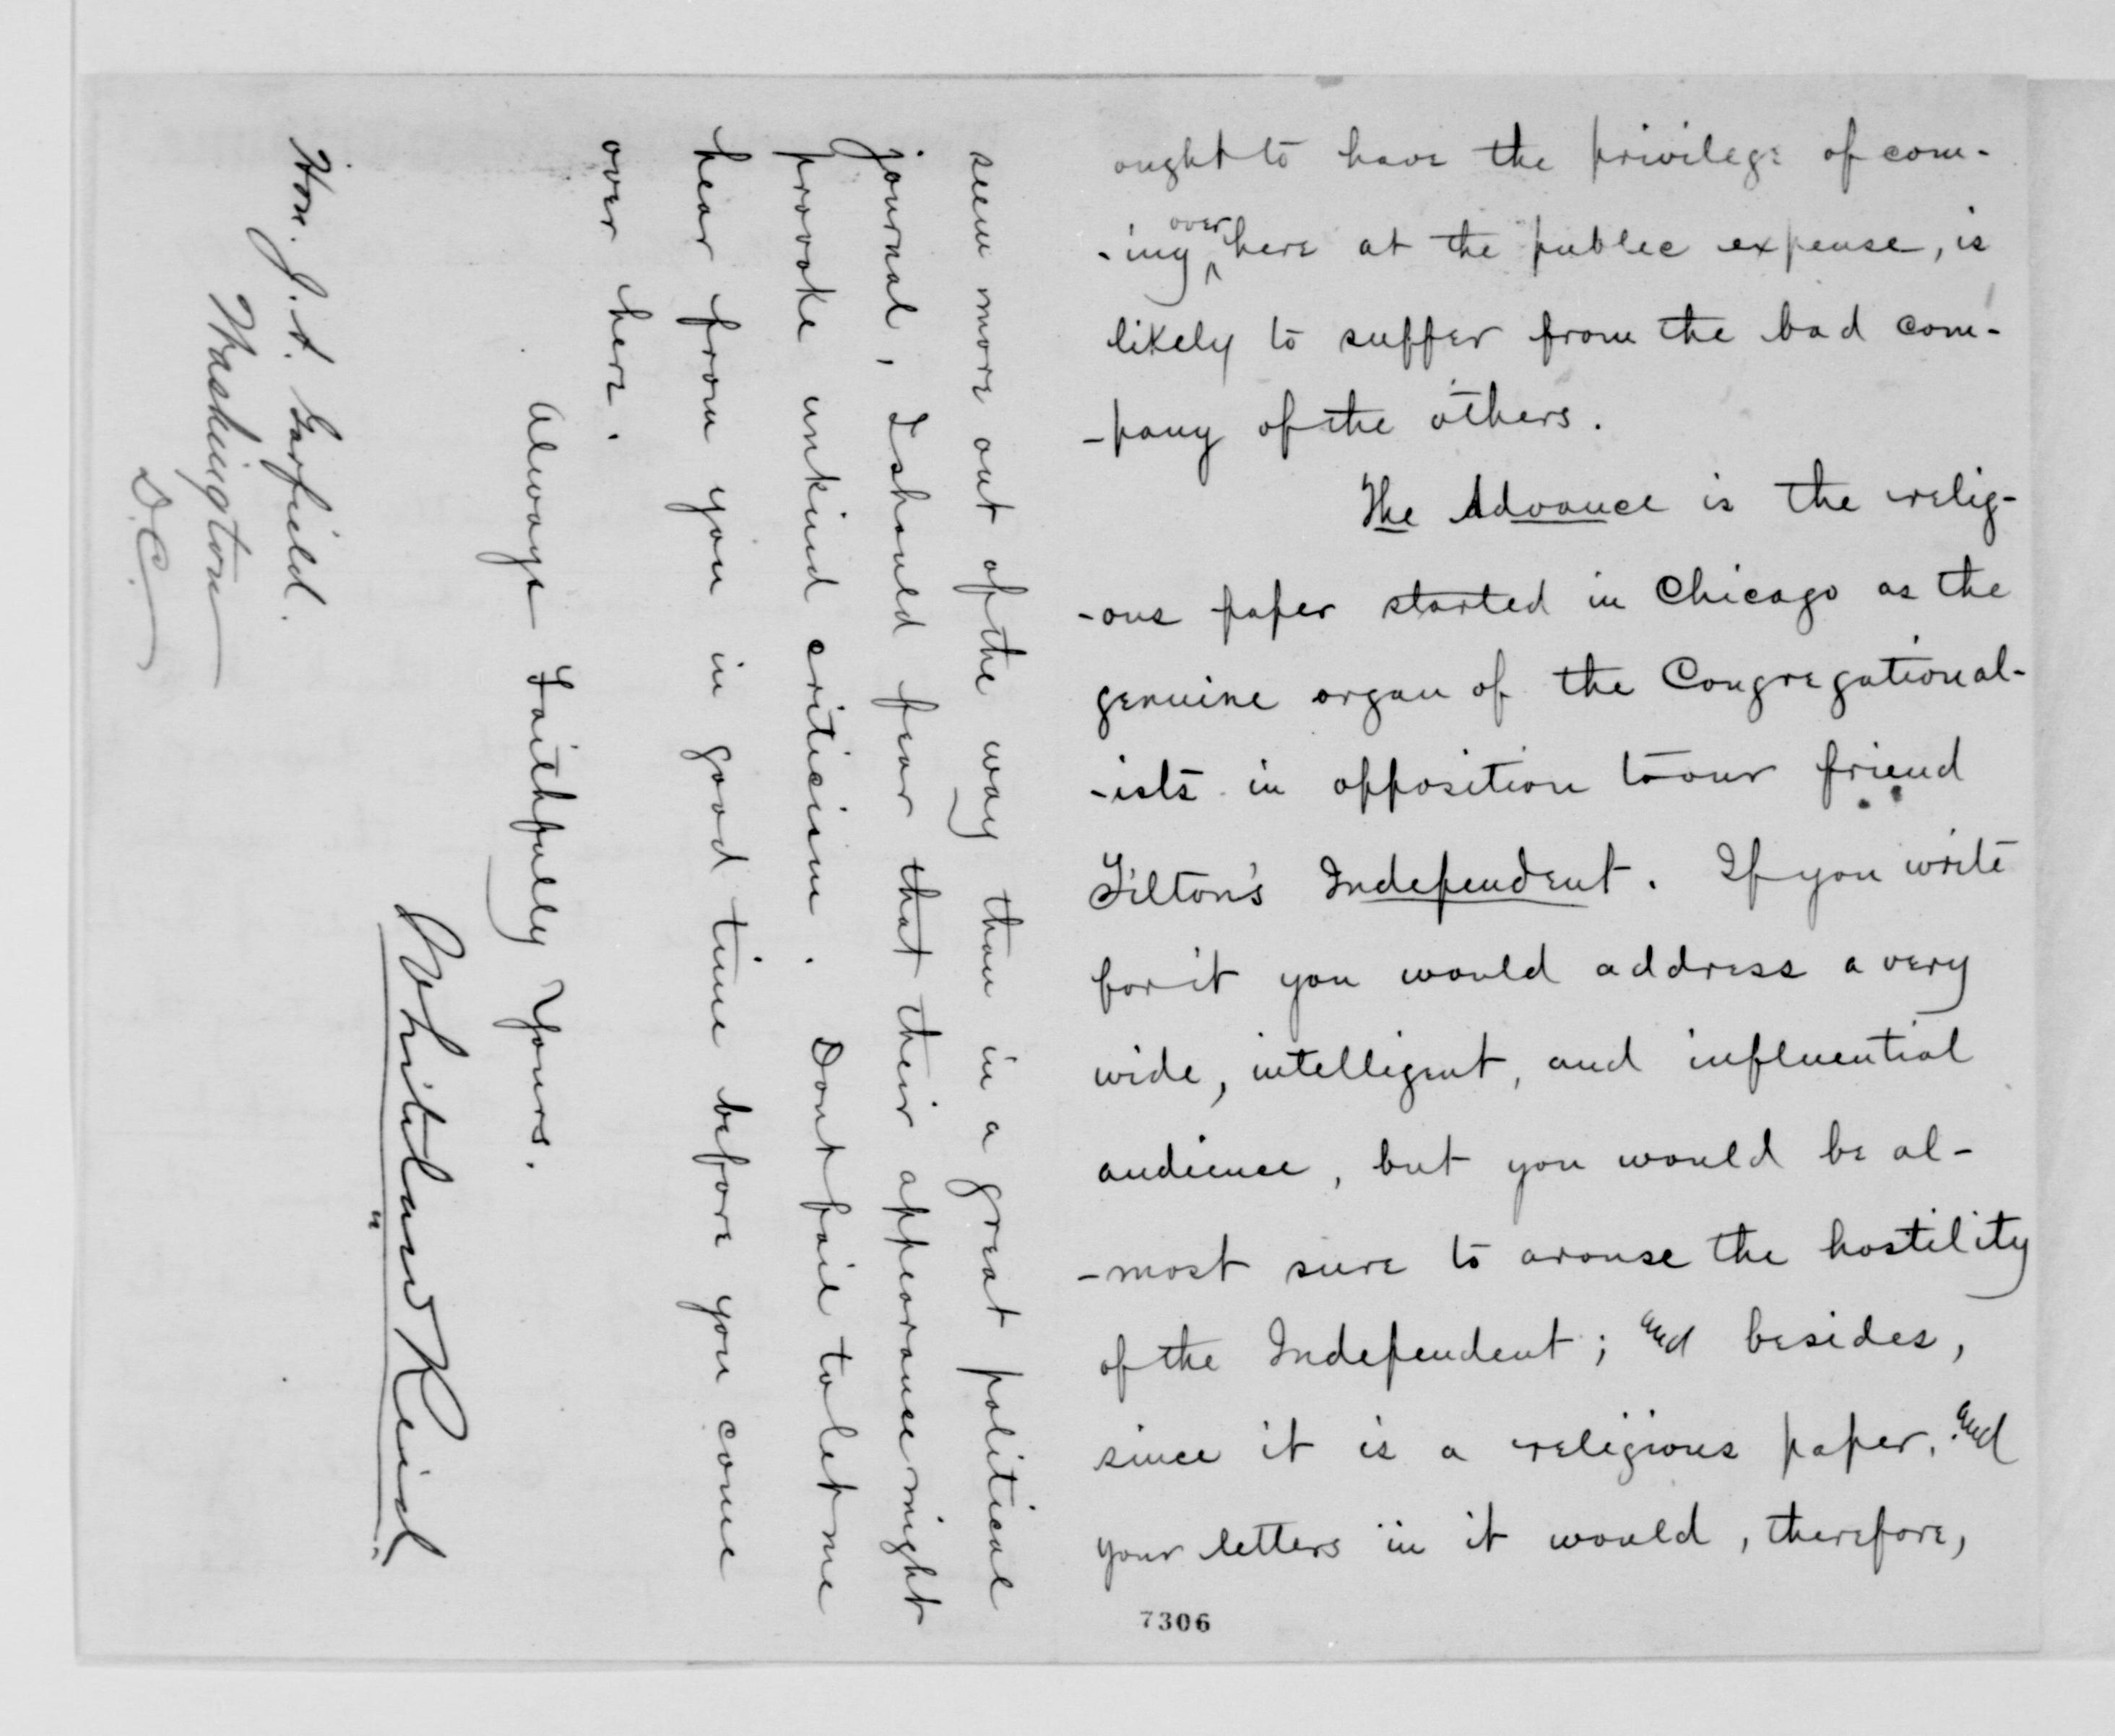 ought to have the privilege of com-
-ing over here at the public expense, is
likely to suffer from the bad com-
-pany of the others.
The Advance is the relig-
-ous paper started in Chicago as the
genuine organ of the Congregational-
-ists in opposition to our friend
Tilton's Independent. If you write
for it you would address a very
wide, intelligent, and influential
audience, but you would be al-
-most sure to arouse the hostility
of the Independent; and besides,
since it is a religious paper, and
your letters in it would, therefore,
7306
seem more out of the way than in a great political
journal, I should fear that their appearance might
provoke unkind criticism. Dont fail to let me
hear from you in good time before you come
over here.
Always Faithfully Yours.
Whitelaw Reid
Hon. J. A. Garfield.
Washington
D.C.